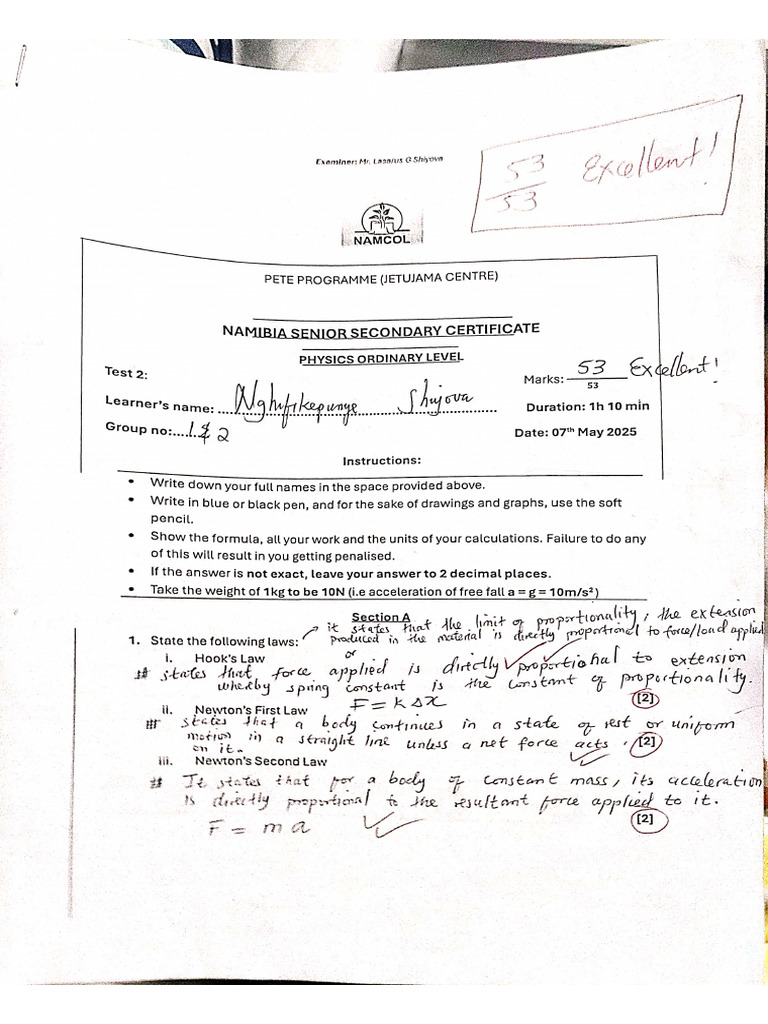 Examiner: Mr. Lasarus G Shiyova
53
53
Excellent!
NAMCOL
PETE PROGRAMME (JETUJAMA CENTRE)
NAMIBIA SENIOR SECONDARY CERTIFICATE
PHYSICS ORDINARY LEVEL
Test 2:
Marks: 53 Excellent!
53
Learner's name: Nghifikepunye Shiyova
Duration: 1h 10 min
Group no: 1 & 2
Date: 07th May 2025
Instructions:
• Write down your full names in the space provided above.
• Write in blue or black pen, and for the sake of drawings and graphs, use the soft
pencil.
• Show the formula, all your work and the units of your calculations. Failure to do any
of this will result in you getting penalised.
• If the answer is not exact, leave your answer to 2 decimal places.
• Take the weight of 1kg to be 10N (i.e acceleration of free fall a = g = 10m/s²)
Section A
→ it states that the limit of proportionality, the extension
produced in the material is directly proportional to force/load applied
1. State the following laws:
or
i. Hook's Law
# states that force applied is directly proportional to extension
whereby spring constant is the constant of proportionality.
F = kΔx
[2]
ii. Newton's First Law
# states that a body continues in a state of rest or uniform
motion in a straight line unless a net force acts
on it.
[2]
iii. Newton's Second Law
# It states that for a body of constant mass, its acceleration
is directly proportional to the resultant force applied to it.
F = ma
[2]